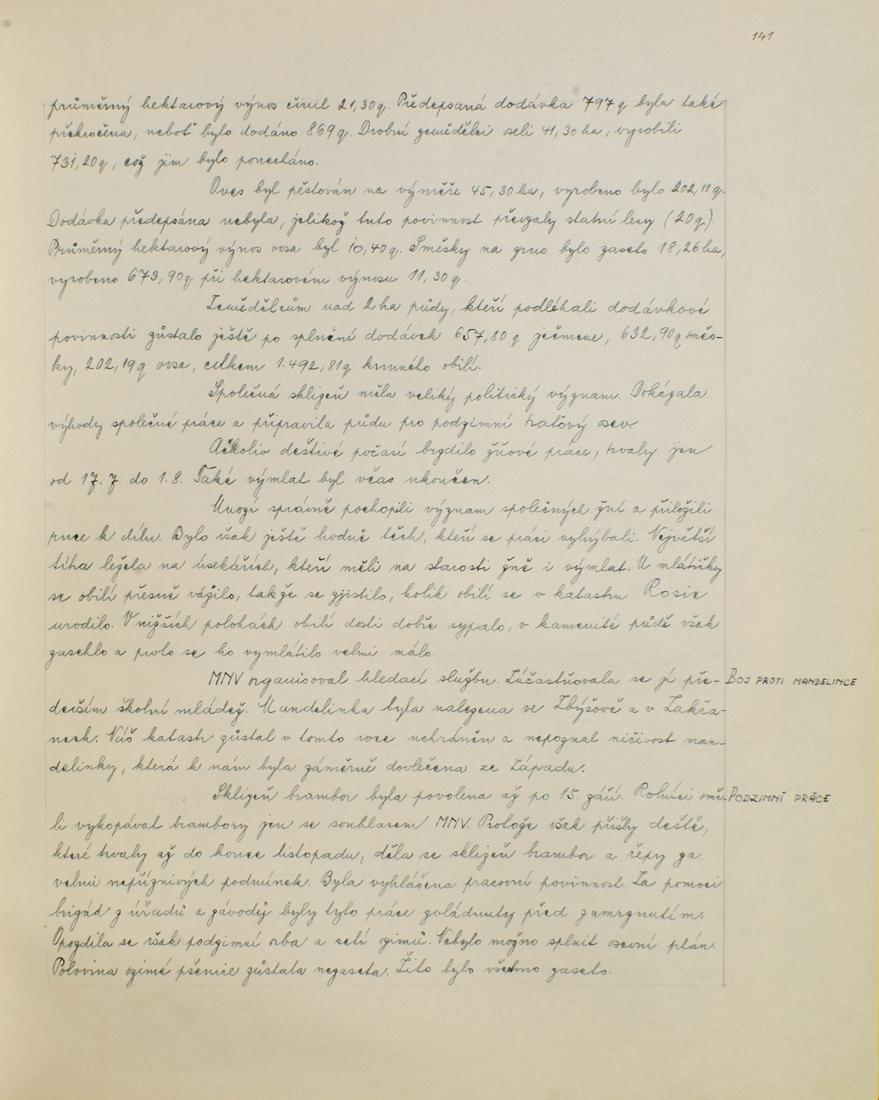 141
průměrný hektarový výnos činil 21,30 q. Předepsaná dodávka 797 q byla také
překročena, neboť bylo dodáno 869 q. Drobní zemědělci seli 41,30 ha, vyrobili
731,20 q, což jim bylo ponecháno.
Oves byl pěstován na výměře 45,30 ha, vyrobeno bylo 202,11 q.
Dodávka předepsána nebyla, jelikož tuto povinnost převzaly statní lesy (20 q).
Průměrný hektarový výnos ovsa byl 10,40 q. Směsky na zrno bylo zaseto 18,26 ha,
vyrobeno 673,90 q při hektarovém výnosu 11,30 q.
Zemědělcům nad 2 ha půdy, kteří podléhali dodávkové
povinnosti zůstalo ještě po splnění dodávek 657,80 q ječmene, 632,90 q směs-
ky, 202,19 q ovsa, celkem 1.492,81 q krmného obilí.
Společná sklizeň měla veliký politický význam. Dokázala
výhody společné práce a připravila půdu pro podzimní traťový osev.
Ačkoliv deštivé počasí brzdilo žňové práce, trvaly jen
od 17. 7. do 1. 8. Také výmlat byl včas ukončen.
Mnozí správně pochopili význam společných žní a přiložili
ruce k dílu. Bylo však ještě hodně těch, kteří se práci vyhýbali. Největší
tíha ležela na úsekářích, kteří měli na starosti žně i výmlat. U mlátičky
se obilí přesně vážilo, takže se zjistilo, kolik obilí se v katastru Rosic
urodilo. V nižších polohách obilí dosti dobře sypalo, v kamenité půdě však
zaschlo a proto se ho vymlátilo velmi málo.
MNV organisoval hledací službu. Zúčastňovala se jí pře- BOJ PROTI MANDELINCE
devším školní mládež. Mandelinka byla nalezena ve Zbýšově a v Zakřa-
nech. Náš katastr zůstal v tomto roce uchráněn a nepoznal ničivost man-
delinky, která k nám byla záměrně dovlečena ze Západu.
Sklizeň brambor byla povolena až po 15. září. Rolníci smě- PODZIMNÍ PRÁCE
li vykopával brambory jen se souhlasem MNV. Protože však přišly deště,
které trvaly až do konce listopadu, děla se sklizeň brambor a řepy za
velmi nepříznivých podmínek. Byla vyhlášena pracovní povinnost. Za pomoci
brigád z úřadů a závodů byly tyto práce zvládnuty před zamrznutím.
Opozdila se však podzimní orba a setí ozimů. Nebylo možno splnit osevní plán.
Polovina ozimé pšenice zůstala nezaseta. Žito bylo všechno zaseto.